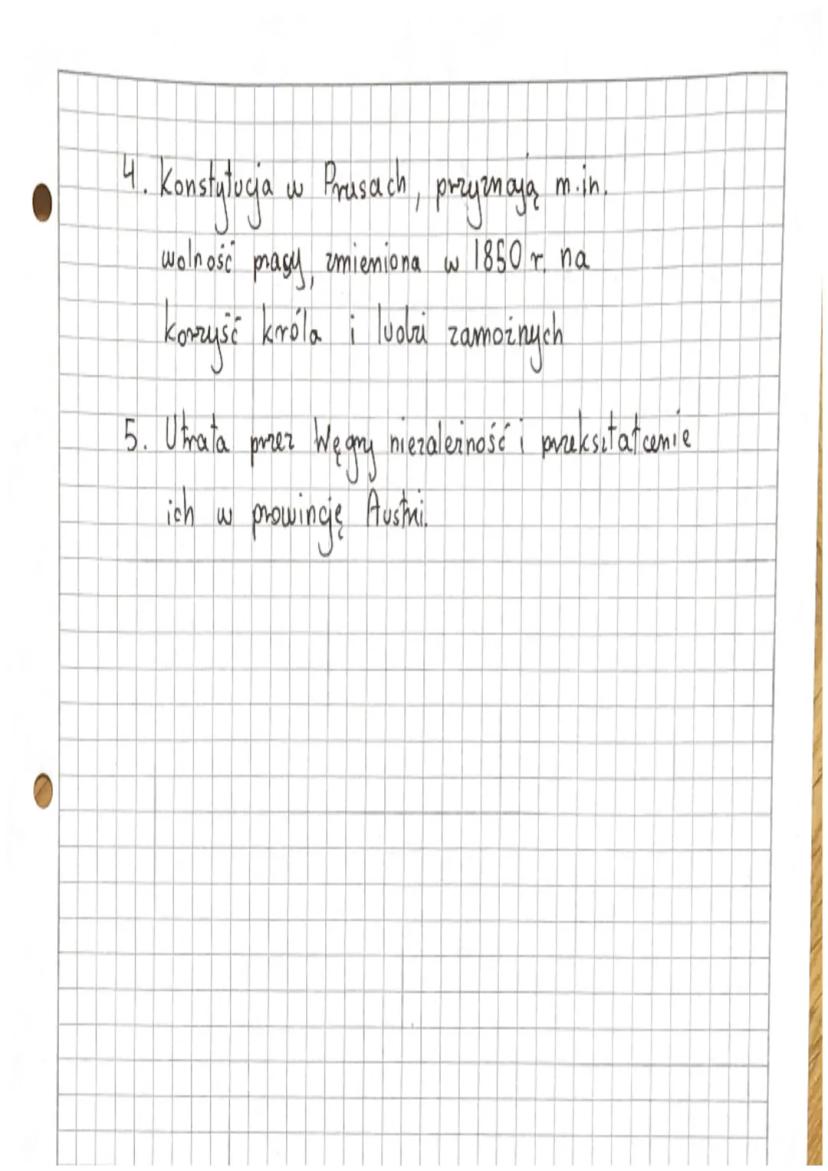 4. Konstytucja w Prusach, przyznają m.in.
wolność prasy, zmieniona w 1850 r. na
korzyść króla i ludzi zamożnych
5. Utrata przez Węgry niezależność i przekształcenie
ich w prowincję Austrii.